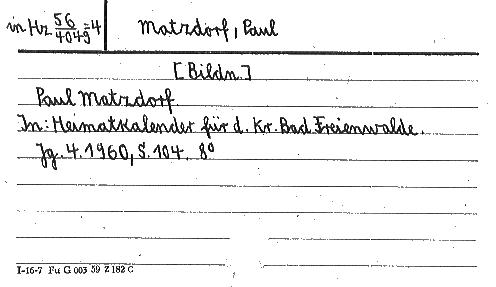 in Hz 56/4049=4
Matzdorf, Paul
[Bildn.]
Paul Matzdorf.
In: Heimatkalender für d. Kr. Bad Freienwalde.
Jg. 4. 1960, S. 104. 8°
I-16-7 Fu G 003 59 Z 182 C